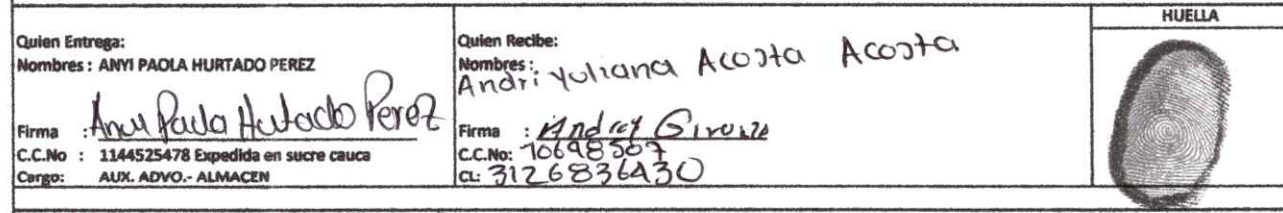 Quien Entrega:
Nombres : ANYI PAOLA HURTADO PEREZ
Firma : Anyi Paola Hurtado Perez
C.C.No : 1144525478 Expedida en sucre cauca
Cargo: AUX. ADVO.- ALMACEN
Quien Recibe:
Nombres :
Andri yuliana Acosta Acosta
Firma :
C.C.No: 10698507
CL: 3126836430
HUELLA